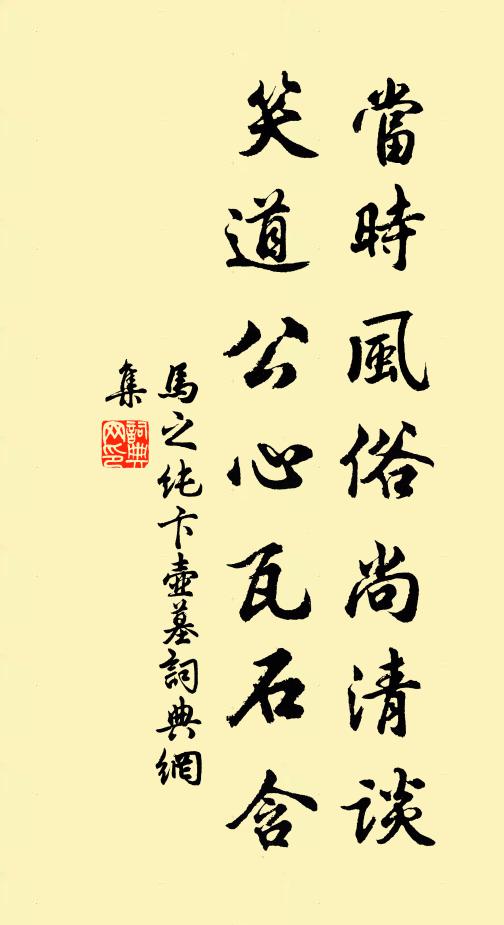 當時風俗尚清談
笑道公心瓦石含
馬之純卞壺墓詞典網
集
詞典
网印